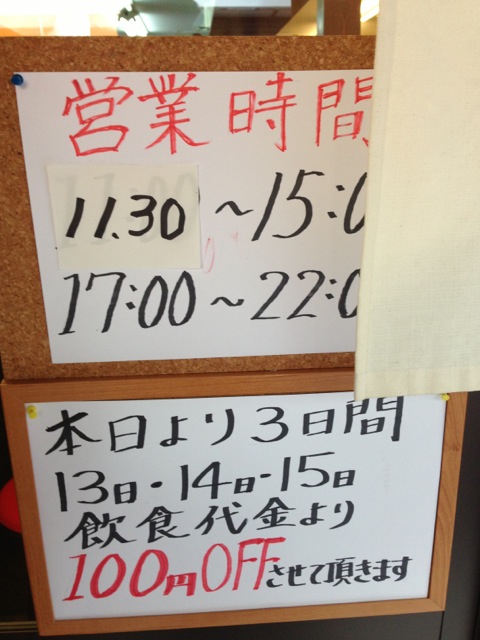 営業時間
11.30~15:0
17:00~22:0
本日より3日間
13日・14日・15日
飲食代金より
100円OFFさせて頂きます